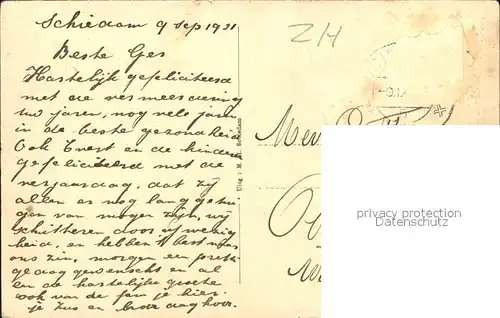 Schiedam 9 sep 1931
Beste Ger
Hartelijk gefeliciteerd
met de vermeerdering
uw jaren, nog vele jaren
in de beste gezondheid
Ook Evert en de kinderen
gefeliciteerd met de
verjaardag, dat zij
allen er nog lang getui
gen van mogen zijn, wij
schitteren door afwezig
heid, en hebben 't best naar
ons zin, morgen een prett
dag gewenscht en al
en de hartelijke groete
ook van de fam je hier.
je zus en broer dag hoor.
ZH
Uitg: M.
Schiedam
Mev
privacy protection
Datenschutz